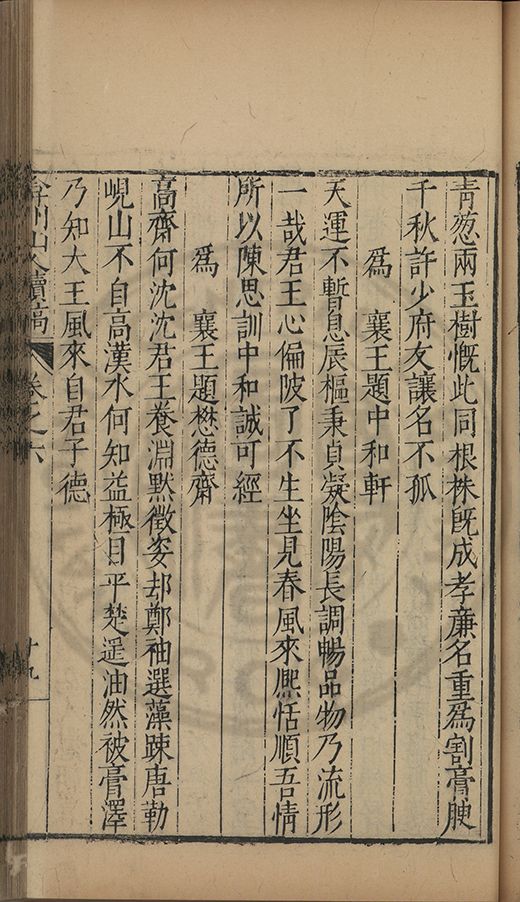 青葱兩玉樹慨此同根株既成孝廉名重爲割膏腴
千秋許少府友讓名不孤
爲 襄王題中和軒
天運不暫息辰樞秉貞凝陰陽長調暢品物乃流形
一哉君王心偏陂了不生坐見春風來熙恬順吾情
所以陳思訓中和誠可經
爲 襄王題懋德齋
高齋何沈沈君王養淵默徵姿却鄭袖選藻踈唐勒
峴山不自高漢水何知益極目平楚遥油然被膏澤
乃知大王風來自君子德
弇州山人續稿 卷之六 十九